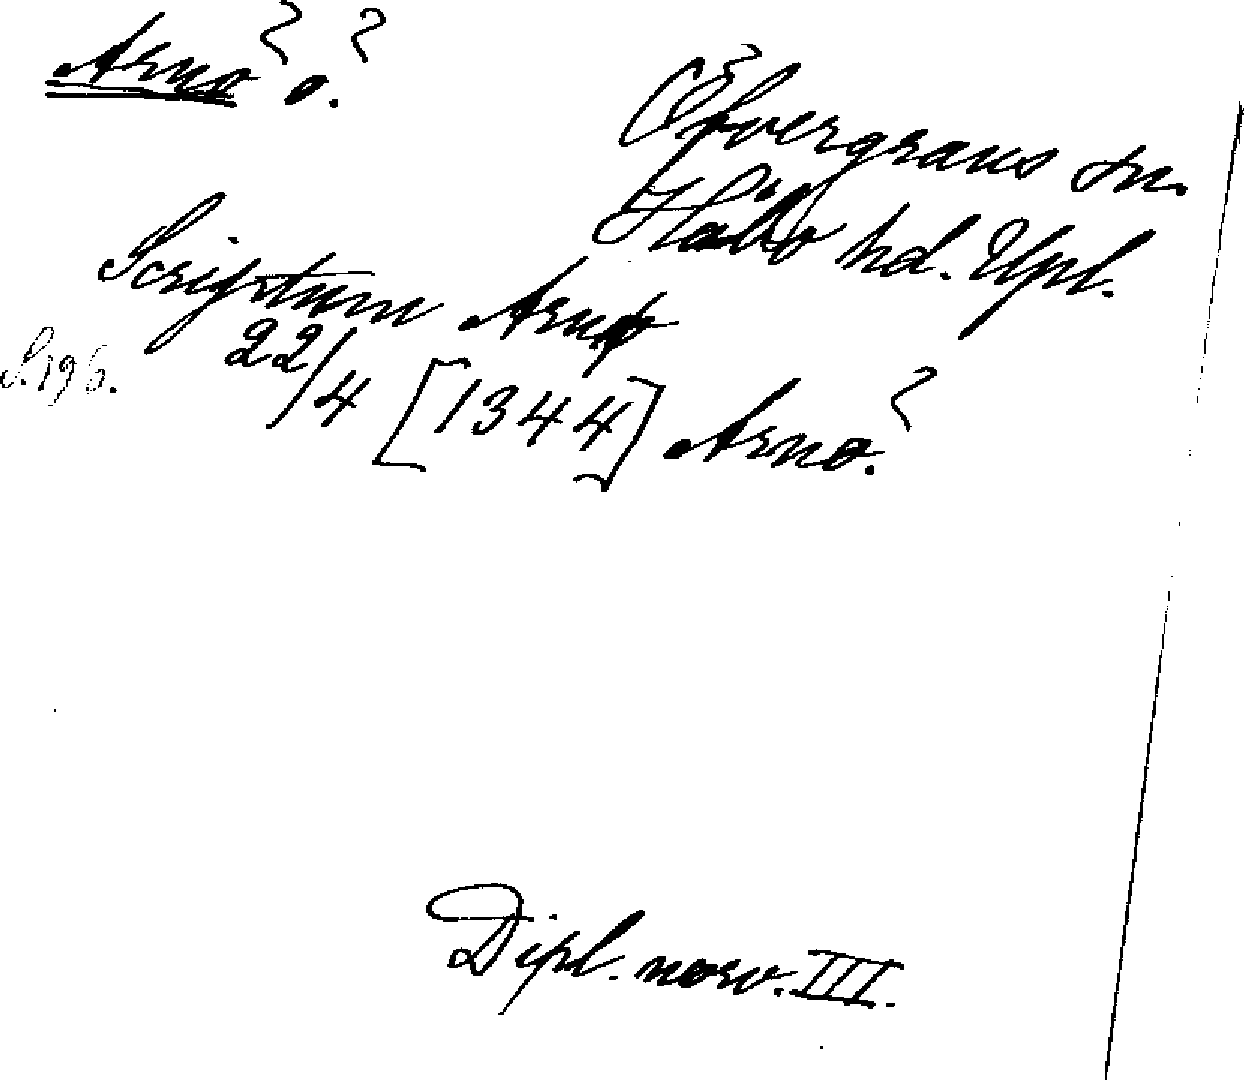 Arnö? o.?
Övergrans sn.
Håbo hd. Upl.
Scriptum Arnø
S. 196. 22/4 [1344] Arnö?.
Dipl. norv. III.